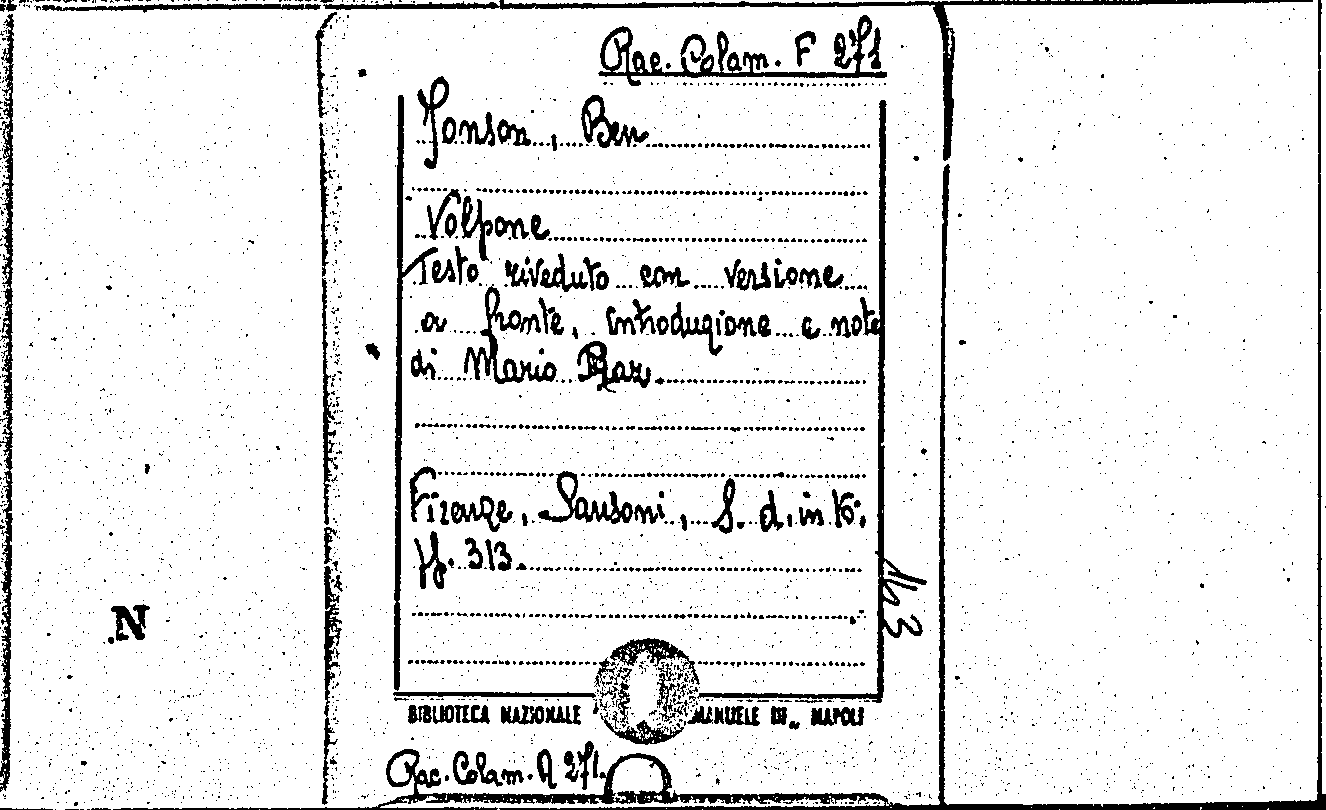 Rac. Colam. F 271
Jonson, Ben
Volpone
Testo riveduto con versione
a fronte, introduzione e note
di Mario Praz.
Firenze, Sansoni, S. d. in 16°.
pp. 313.
163
N
BIBLIOTECA NAZIONALE MANUELE III„ NAPOLI
Rac. Colam. A 271.